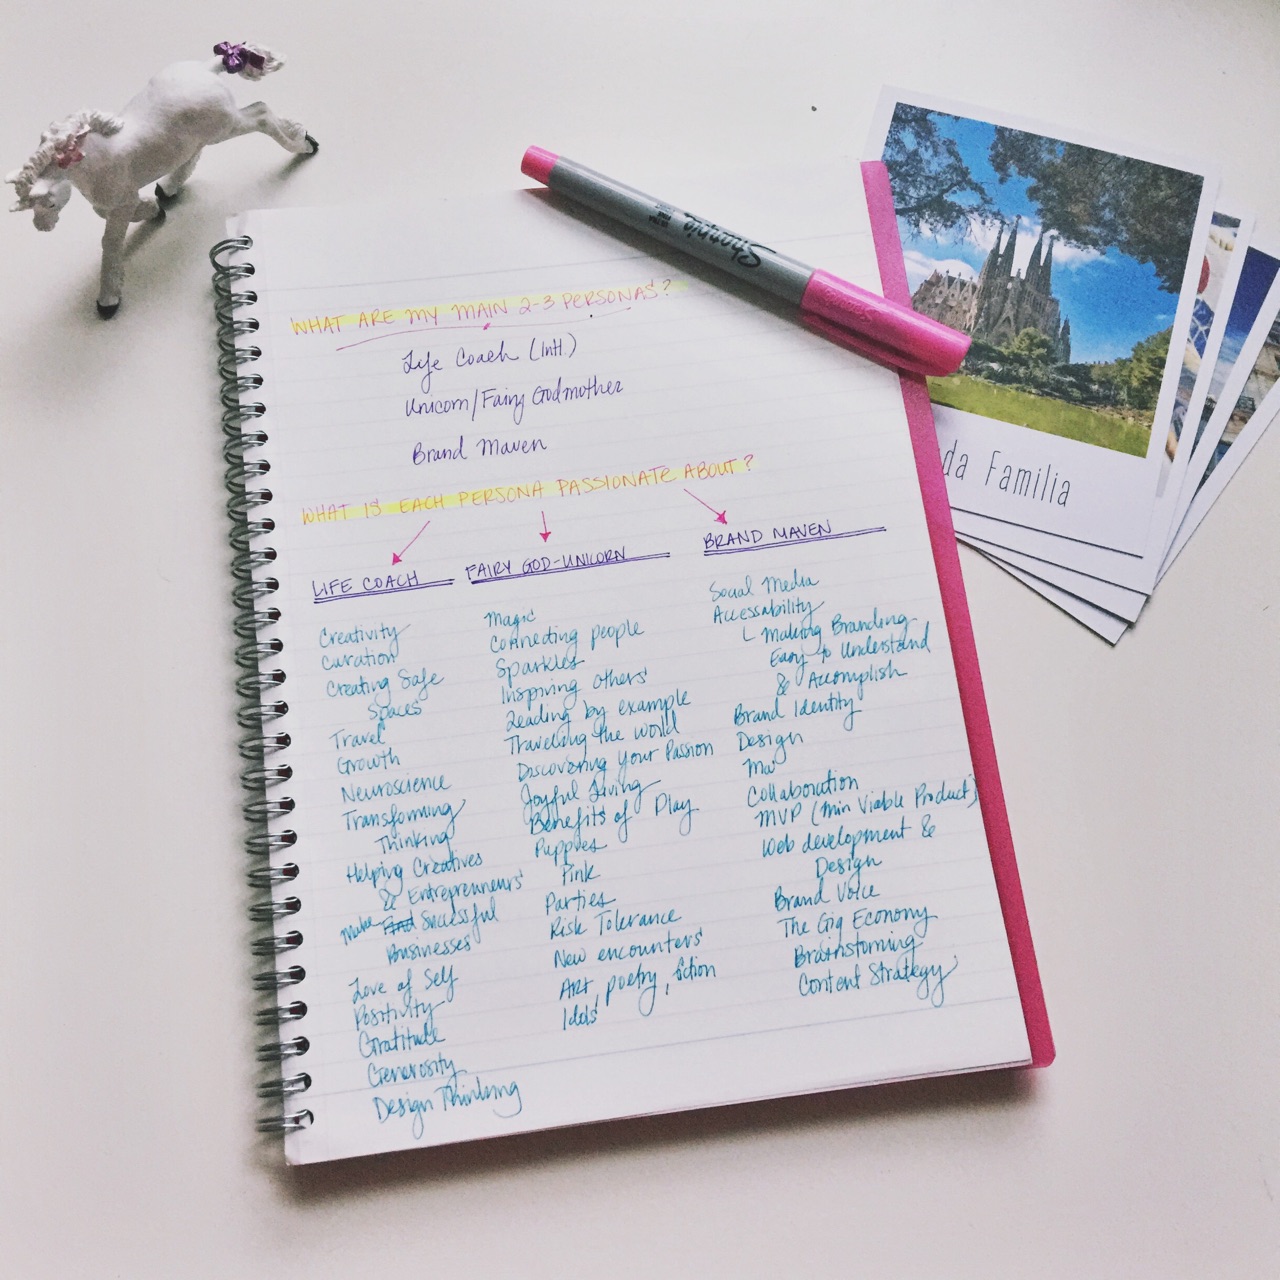 WHAT ARE MY MAIN 2-3 PERSONAS?
Life Coach (Intl.)
Unicorn/Fairy Godmother
Brand Maven
WHAT IS EACH PERSONA PASSIONATE ABOUT?
LIFE COACH
Creativity
Curation
Creating Safe
Spaces
Travel
Growth
Neuroscience
Transforming
Thinking
Helping Creatives
& Entrepreneurs
Make Find Successful
Businesses
Love of Self
Positivity
Gratitude
Generosity
Design Thinking
FAIRY GOD-UNICORN
Magic
Connecting people
Sparkles
Inspiring others
Leading by example
Traveling the world
Discovering Your Passion
Joyful Living
Benefits of Play
Puppies
Pink
Parties
Risk Tolerance
New encounters
Art, poetry, fiction
Idols
BRAND MAVEN
Social Media
Accessability
Making Branding
Easy to Understand
& Accomplish
Brand Identity
Design
Ma
Collaboration
MVP (Min Viable Product)
Web development &
Design
Brand Voice
The Gig Economy
Brainstorming
Content Strategy
Sharpie
da Familia